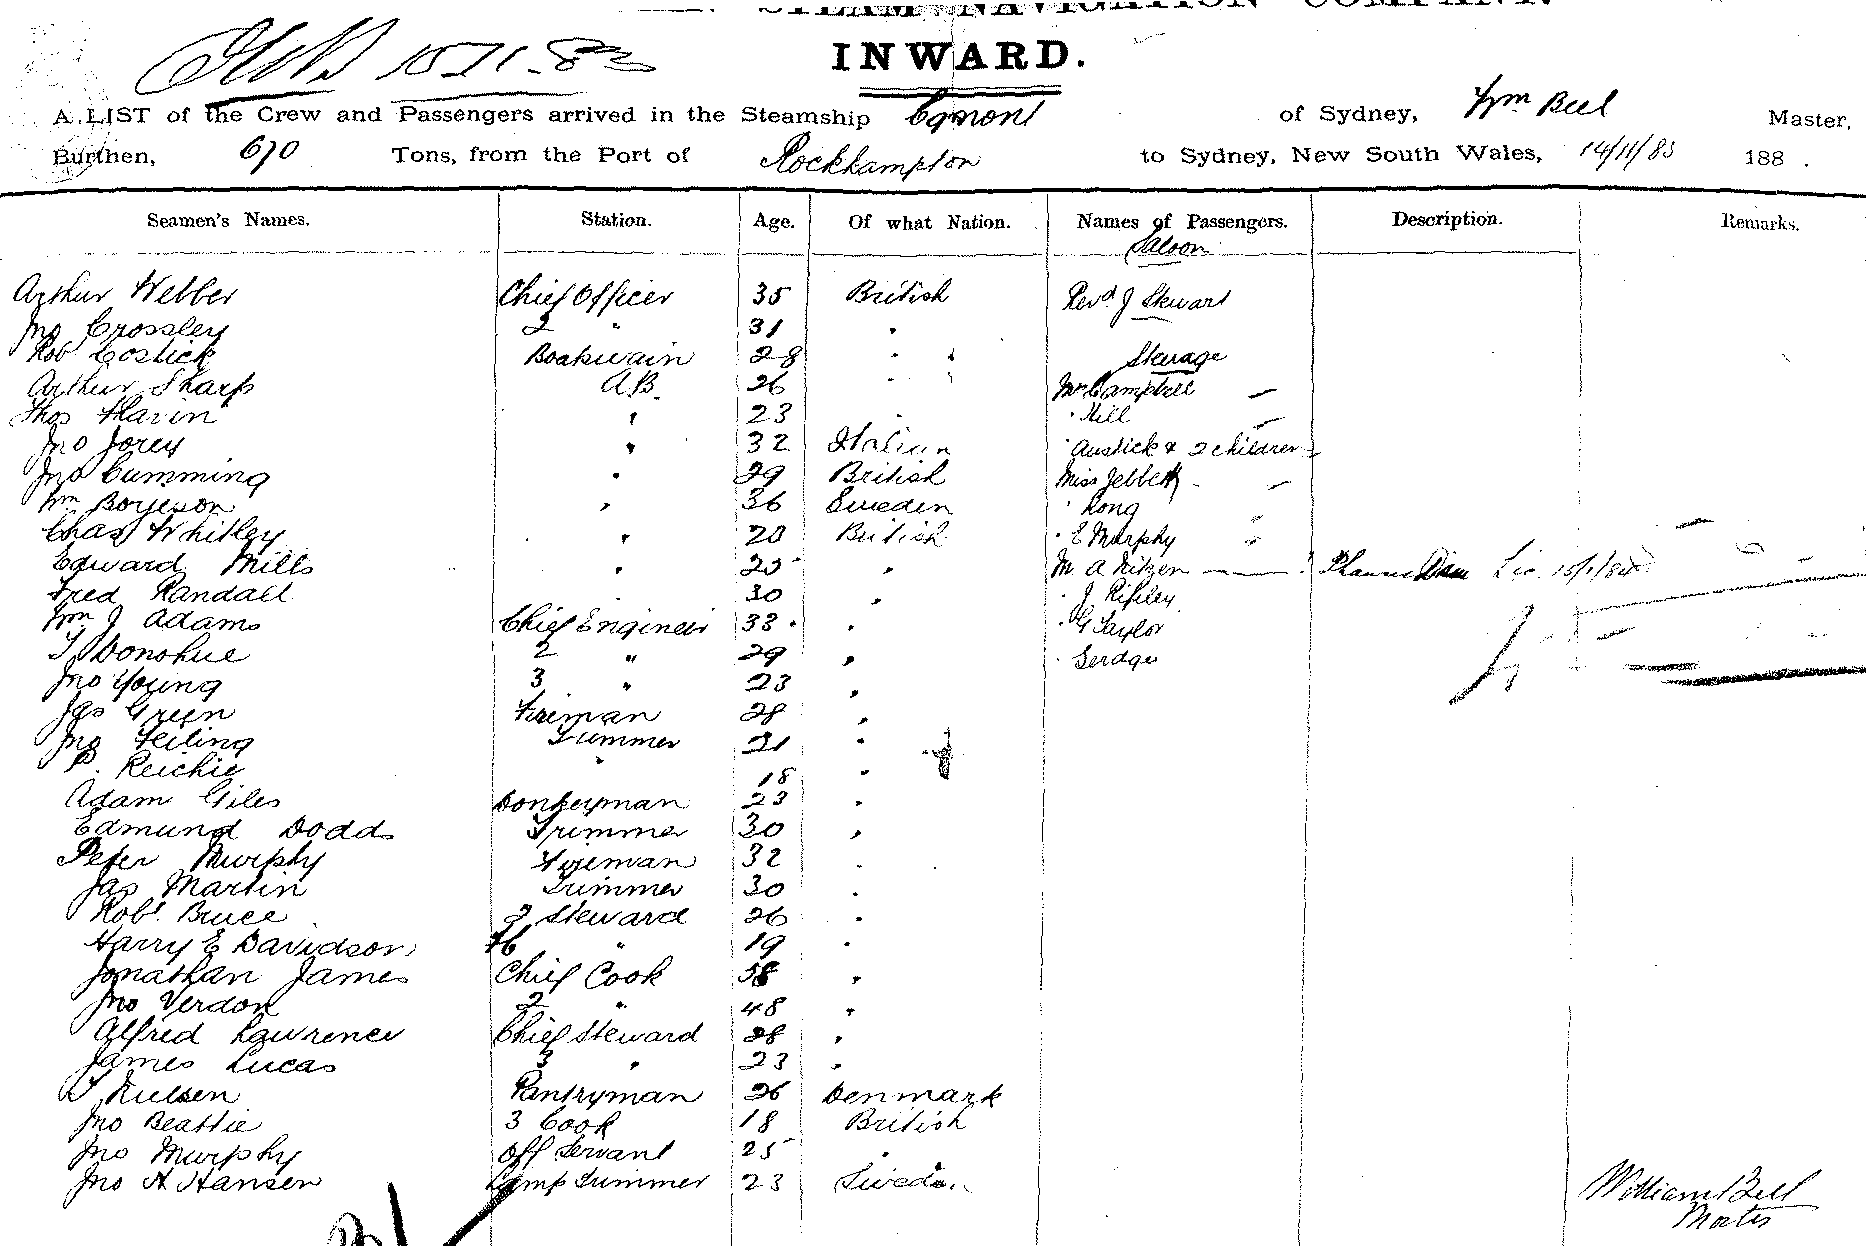 STEAM NAVIGATION COMPANY.
15.11.83
INWARD.
A LIST of the Crew and Passengers arrived in the Steamship Egmont of Sydney, Wm Bell Master,
Burthen, 670 Tons, from the Port of Rockhampton to Sydney, New South Wales, 14/11/83 188 .
Seamen's Names. Station. Age. Of what Nation. Names of Passengers. Description. Remarks.
Saloon
Arthur Webber Chief Officer 35 British Revd J Stewart
Jno Crossley 2 " 31 "
Rob Costick Boatswain 28 " " Steerage
Arthur Sharp A.B. 26 " " Mr Campbell
Thos Flavin " 23 " " Hill
Jno Jorey " 32 Italian " Austick & 2 children
Jno Cumming " 29 British Miss Jebbett
Wm Borjeson " 36 Sweden " Long
Chas Whitley " 20 British " E Murphy
Edward Mills " 25 " M. A Nitzen Lic 15/1/84
Fred Randall " 30 " " J Ripley
Wm J Adams Chief Engineer 33 " " G Taylor
T Donohue 2 " 29 " " Serdge
Jno Young 3 " 23 "
Jas Green Fireman 28 "
Jno Feiling Trimmer 21 "
P. Reichie " 18 "
Adam Giles Donkeyman 23 "
Edmund Dodd Trimmer 30 "
Peter Murphy Fireman 32 "
Jas Martin Trimmer 30 "
Robt. Bruce 2 Steward 26 "
Harry E Davidson " 19 "
Jonathan James Chief Cook 58 "
Jno Verdon 2 " 48 "
Alfred Lawrence Chief Steward 28 "
James Lucas 3 " 23 "
Nielsen Pantryman 26 Denmark
Jno Beattie 3 Cook 18 British
Jno Murphy Off Servant 25 "
Jno A Hansen Lamp Trimmer 23 Sweden
William Bell
Master